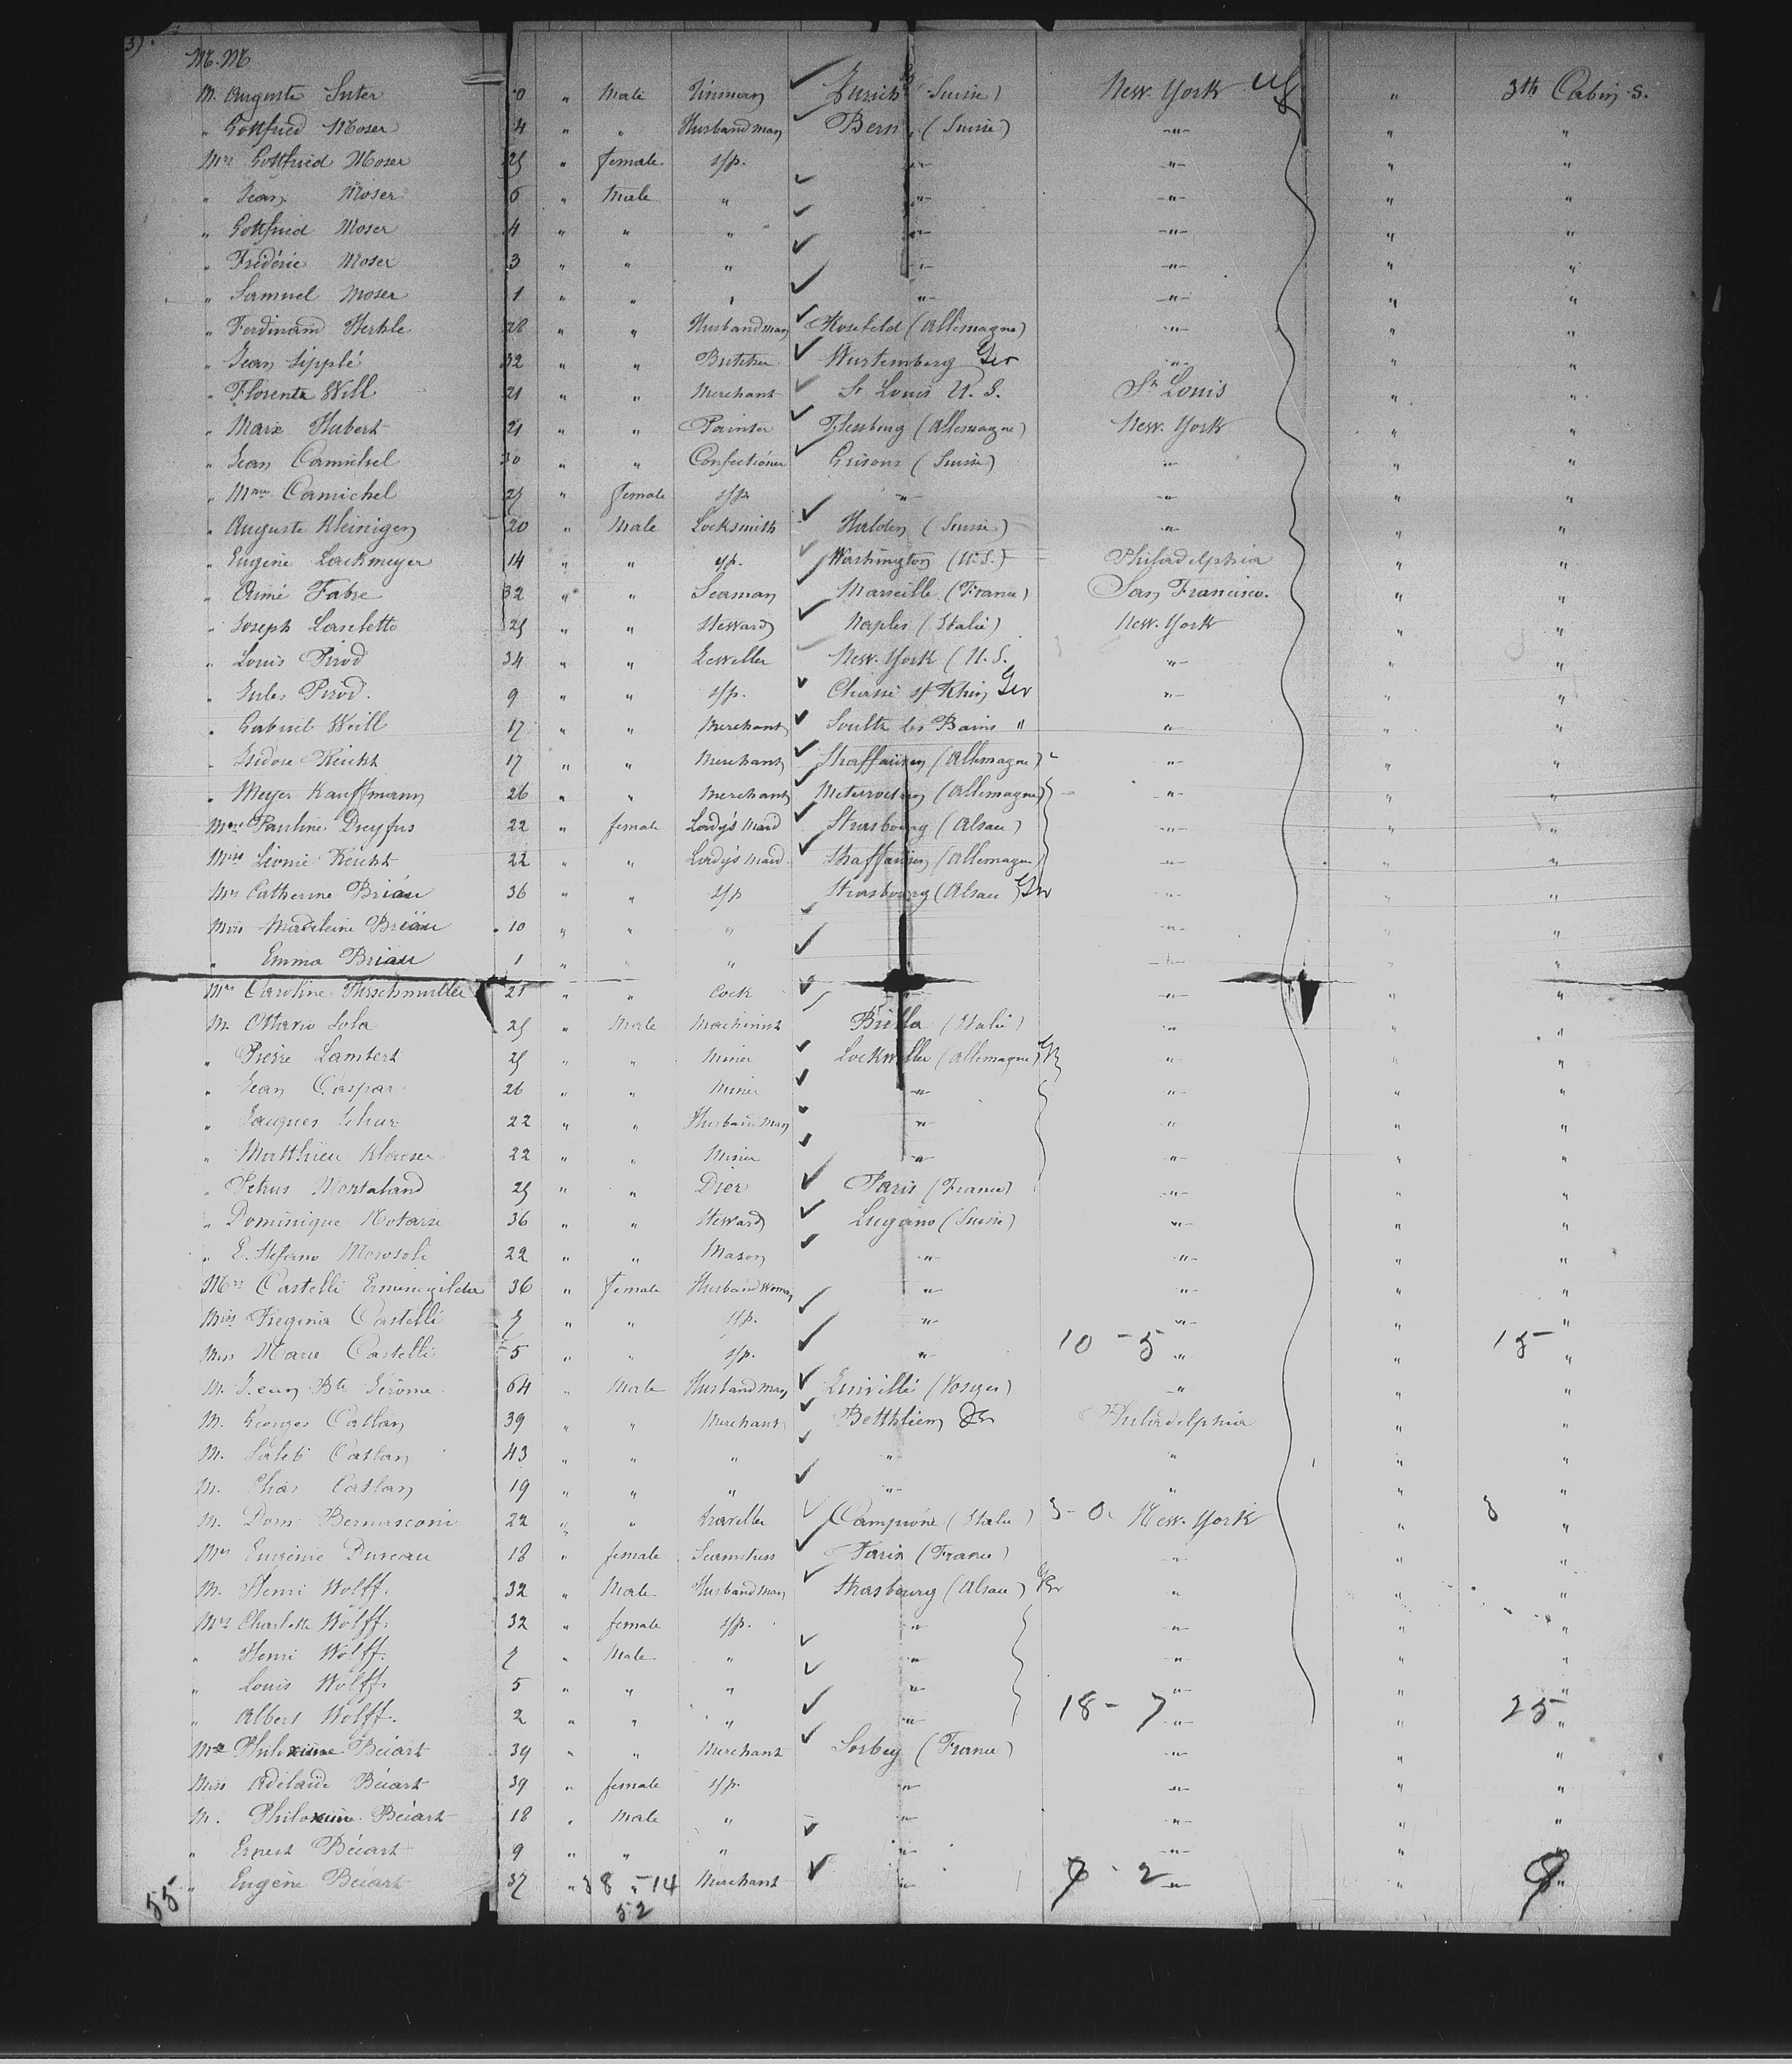 3).
M. M
M. Auguste Suter 0 " Male Tinman Zurich (Suisse) New-York US " 3th Cabin.s.
" Gottfried Moser 4 " " Husbandman Bern (Suisse) -"- " "
Mrs Gottfried Moser 25 " female s/p. -"- -"- " "
" Jean Moser 6 " Male " -"- -"- " "
" Gottfried Moser 4 " " " -"- -"- " "
" Frédéric Moser 3 " " " -"- -"- " "
" Samuel Moser 1 " " " -"- -"- " "
" Ferdinand Herkle 28 " " Husbandman Rosefeld (Allemagne) -"- " "
" Jean Sipplé 32 " " Butcher Wurtemberg Ger -"- " "
" Florente Will 21 " " Merchant St Louis U.S. St Louis " "
" Marx Hubert 21 " " Painter Flensburg (Allemagne) New-York " "
" Jean Camichel 30 " " Confectioner Grisons (Suisse) -"- " "
" Mme Camichel 27 " female s/p. -"- -"- " "
" Auguste Kleinigen 20 " Male Locksmith Halden (Suisse) -"- " "
" Eugène Lackmeyer 14 " " s/p. Washington (U.S.) Philadelphia " "
" Aimé Fabre 32 " " Seaman Marseille (France) San Francisco. " "
" Joseph Lascletto 25 " " Steward Naples (Italie) New-York " "
" Louis Pirod 34 " " Jeweller New-York (U.S. -"- " "
" Jules Pirod. 9 " " s/p. s/ Rhin Ger -"- " "
" Gabriel Weill 17 " " Merchant Soultz les Bains " -"- " "
" Isidore Reicht 17 " " Merchant Shaffausen (Allemagne) -"- " "
" Meyer Kauffmann 26 " " Merchant (Allemagne) -"- " "
Mme Pauline Dreyfus 22 " female Lady's Maid Strasbourg (Alsace) -"- " "
Miss Léonie Reicht 22 " " Lady's Maid. Shaffausen (Allemagne) -"- " "
Mrs Catherine Briau 36 " " s/p Strasbourg (Alsace) Ger -"- " "
Miss Madeleine Briau 10 " " " -"- " "
" Emma Briau 1 " " " -"- " "
Mrs Caroline Hirschmuller 21 " " Cock -"- " "
M. Ottavio Sola 25 " Male Machinist Biella (Italie) -"- " "
" Pierre Lambert 25 " " Miner Lockwiller (Allemagne) Ger " " "
" Jean Caspar 26 " " Miner -"- -"- " "
" Jacques Schur 22 " " Husbandman -"- -"- " "
" Matthieu Klaeser 22 " " Miner -"- -"- " "
" Petrus Montaland 25 " " Dier Paris (France) -"- " "
" Dominique Notaris 36 " " Steward Lugano (Suisse) -"- " "
" E. Stefano Morosoli 22 " " Mason -"- -"- " "
Mrs Castelli Ermenigilda 36 " female Husbandwoman -"- -"- " "
Miss Reginia Castelli 7 " " s/p. -"- -"- " "
Miss Marie Castelli 5 " " s/p. -"- 10 - 5 -"- " 15 "
M. Jean Bte Gérome 64 " Male Husbandman (Vosges) -"- " "
M. Georges Catlan 39 " " Merchant Betthléem Philadelphia " "
M. Saleti Catlan 43 " " " " " " "
M. Chas Catlan 19 " " " -"- " " "
M. Dom. Bernasconi 22 " " Traveller Campione (Italie) 3-0. New-York " 3 "
Mrs Eugénie Dureau 18 " female Seamstress Paris (France) -"- " "
M. Henri Wolff. 32 " Male Husbandman Strasbourg (Alsace) Ger " " "
Mrs Charlotte Wolff. 32 " female s/p. -"- -"- " "
" Henri Wolff. 7 " Male " -"- -"- " "
" Louis Wolff. 5 " " " -"- -"- " "
" Albert Wolff. 2 " " " -"- 18 - 7 -"- " 25 "
Mr Philoxime Béiart 39 " " Merchant Sorbey (France) -"- " "
Miss Adélaïde Béiart 39 " female s/p. -"- -"- " "
M. Philoxime Béiart 18 " Male " -"- -"- " "
" Ernest Béiart 9 " " " -"- -"- " "
" Eugène Béiart 37 " 38 - 14 Merchant -"- 7 - 2 -"- " 9 "
55 52